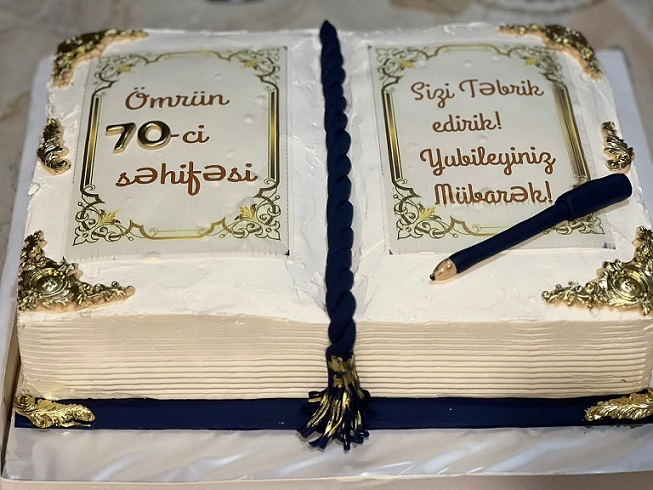 Ömrün
70-ci
səhifəsi
Sizi Təbrik
edirik!
Yubileyiniz
Mübarək!